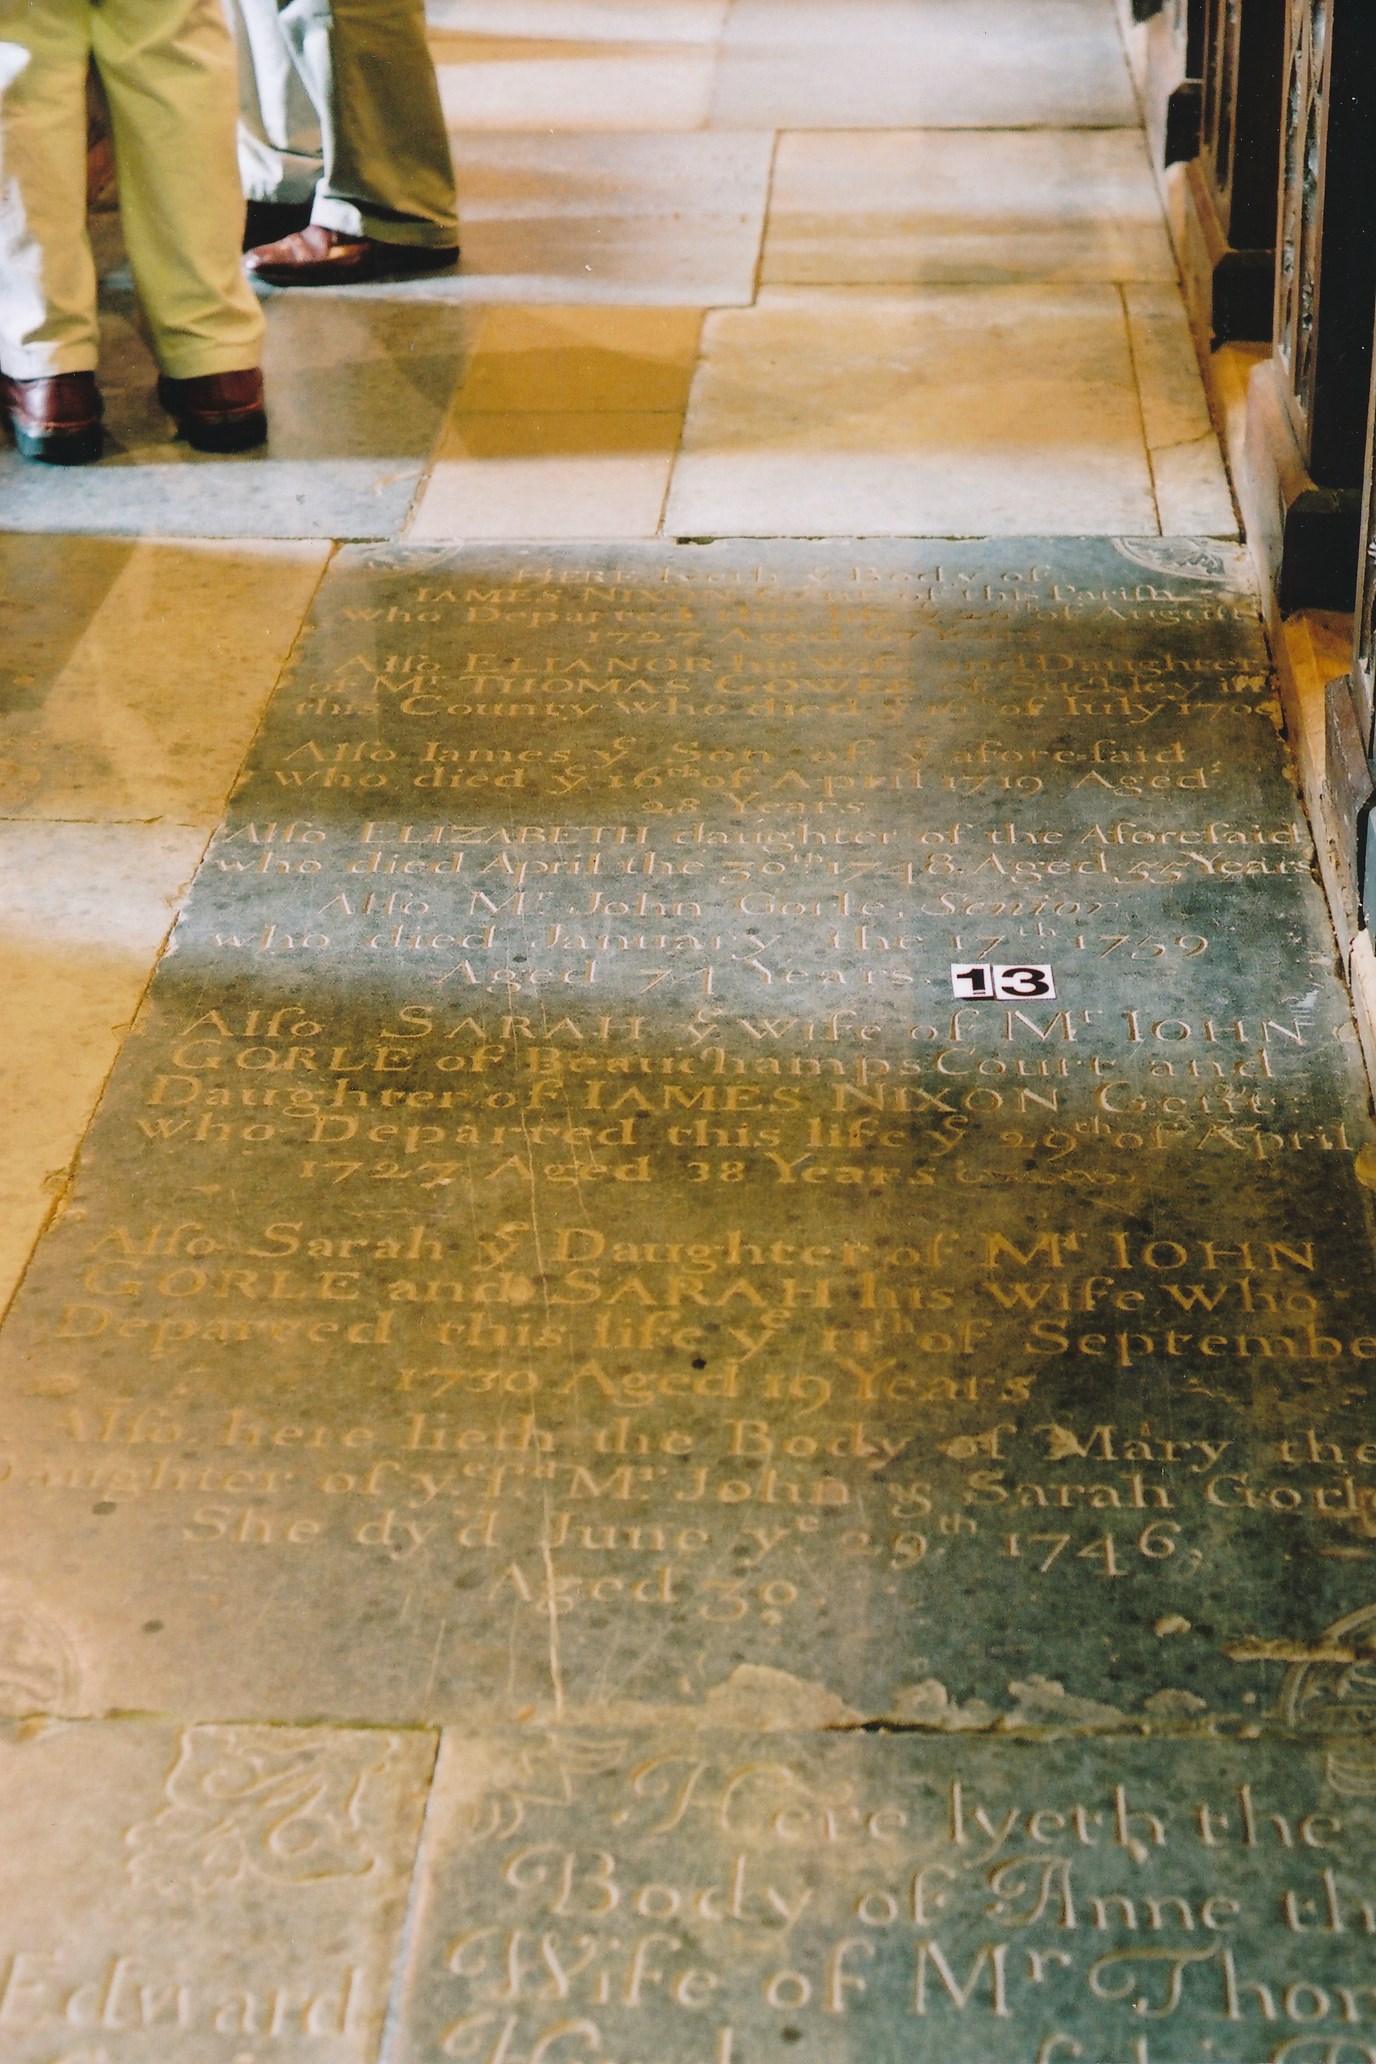 HERE lyeth yͤ Body of
IAMES NIXON Gent of this Pariſh
who Departed this life yͤ 20th of Auguſt
1727 Aged 67 Years
Alſo ELIANOR his Wife and Daughter
of Mr. THOMAS GOWER of Suckley in
this County who died yͤ of July
Alſo Iames yͤ Son of yͤ afore-ſaid
who died yͤ 16th of April 1719 Aged
28 Years
Alſo ELIZABETH daughter of the Aforeſaid
who died April the 30th 1748. Aged 55 Years
Alſo Mr. John Gorle, Senior
who died January the 17th. 1759
Aged 74 Years.
13
Alſo SARAH yͤ Wife of Mr. IOHN
GORLE of Beauchamps Court and
Daughter of IAMES NIXON Gent:
who Departed this life yͤ 29th of April
1727 Aged 38 Years
Alſo Sarah yͤ Daughter of Mr. IOHN
GORLE and SARAH his Wife Who
Departed this life yͤ 11th of Septembe
1730 Aged 19 Years
Alſo here lieth the Body of Mary the
Daughter of yͤ ſd Mr. John & Sarah Gorle
She dy'd June yͤ 29th 1746,
Aged 30.
Here lyeth the
Body of Anne th
Wife of Mr Thom
Edward